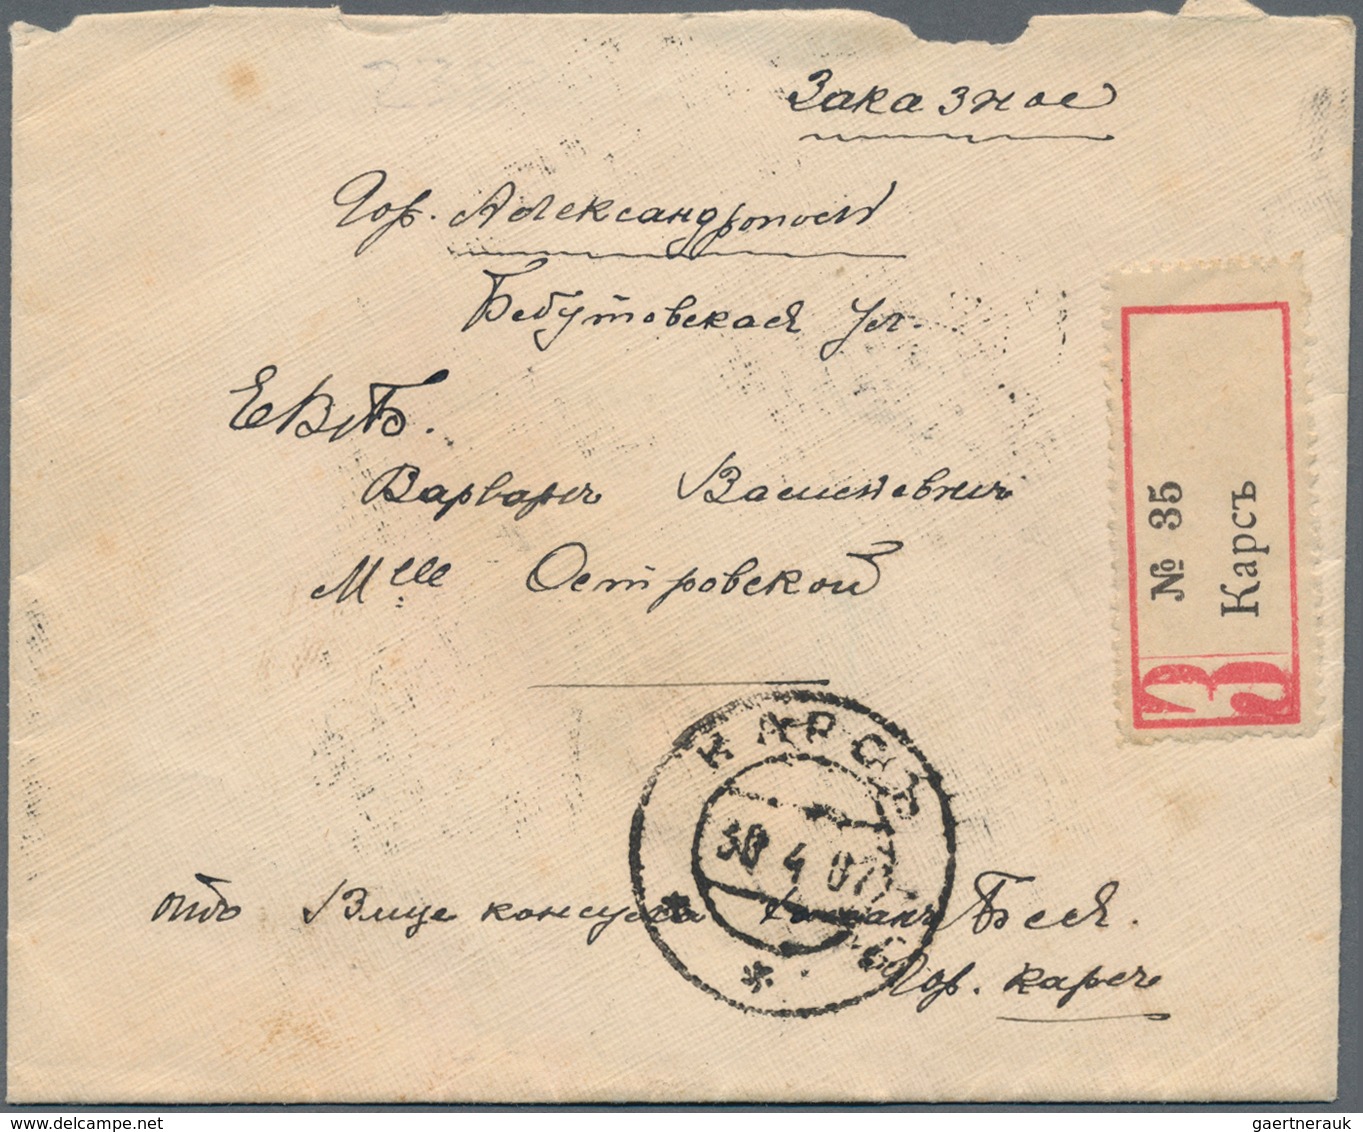 Заказное
Гор. Александрополь
Бебутовская ул.
ЕВПБ.
Варваре Васильевне
Mlle Островской
№ 35
Карсъ
З
КАРСЪ
30 4 07
отъ Вице консула Бея.
Гор. Карсъ
gaertnerauk @ delcampe.net